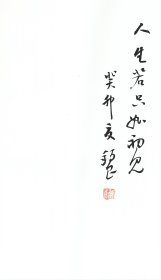 人生若只如初见
癸卯夏